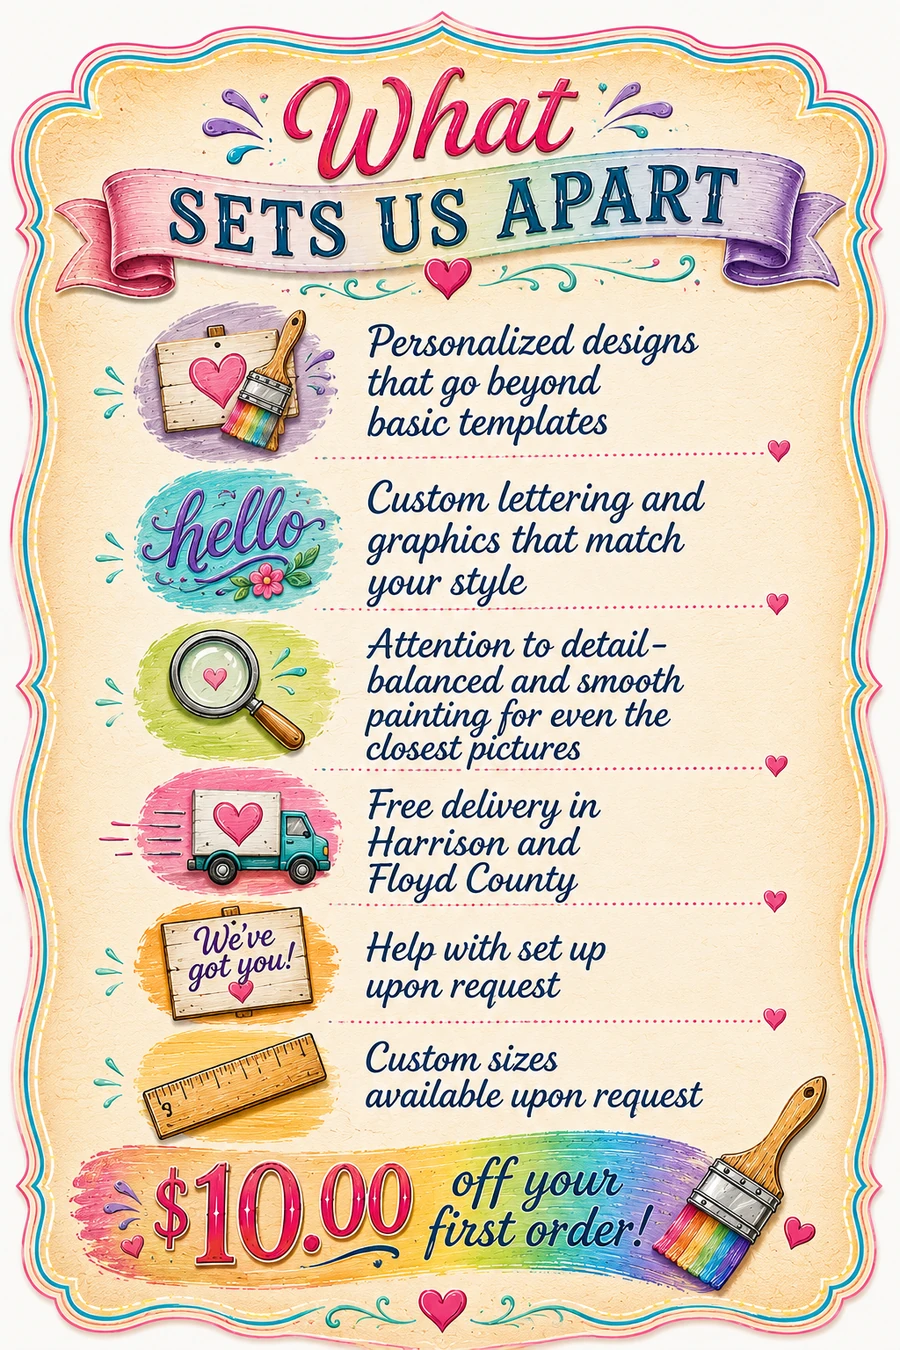 What
SETS US APART
Personalized designs
that go beyond
basic templates
hello
Custom lettering and
graphics that match
your style
Attention to detail–
balanced and smooth
painting for even the
closest pictures
Free delivery in
Harrison and
Floyd County
We've
got you!
Help with set up
upon request
9
Custom sizes
available upon request
$10.00 off your
first order!